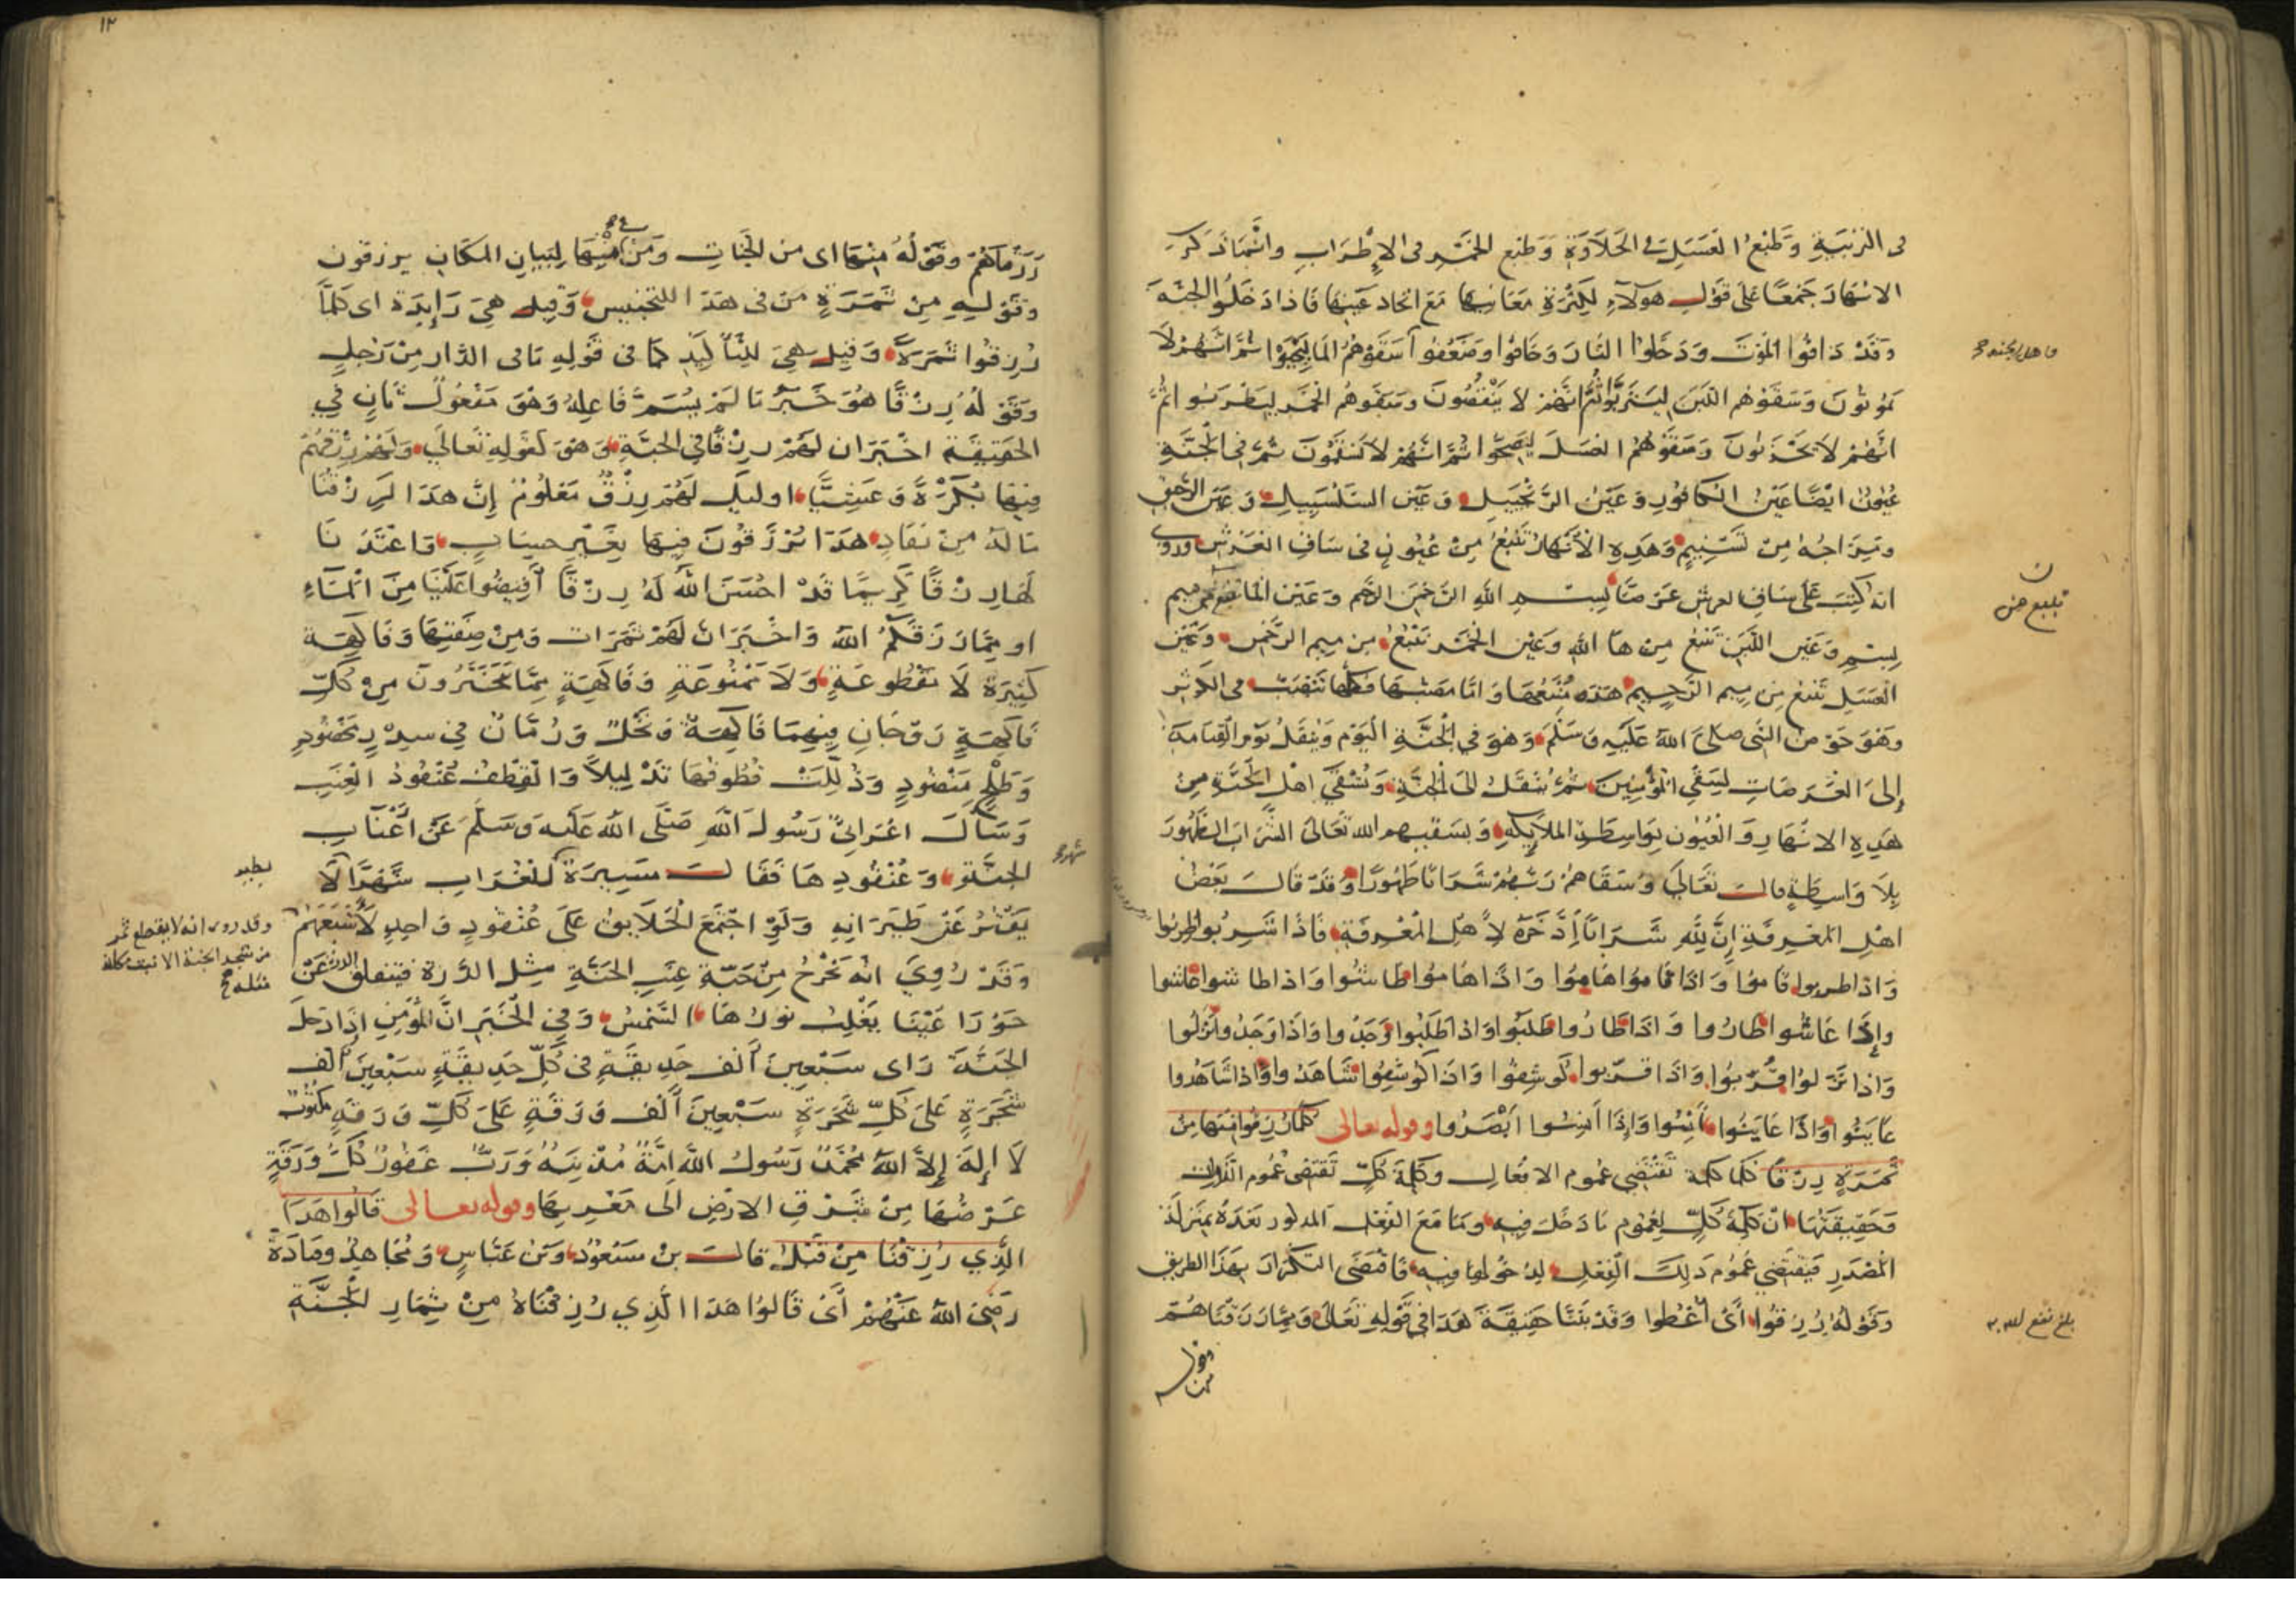 فى التربية وَطَبْعُ العَسَلِ فى الحَلَاوَةِ وَطَبْعِ الخَمْرِ فى الإِطْرَابِ وانّما ذَكرَ
الانهَارَ جَمْعًا عَلَى قَوْلِ هؤلَاءِ لِكَثْرَةِ مَعَانِيهَا مَعَ اتحاد عَيْنِهَا فَاذا دَخَلُوا الجنّةَ
وَقَدْ ذَاقُوا المَوْتَ وَدَخَلُوا النَّارَ وَخَافُوا وَضَعُفُوا سَقَوْهُمُ المَا لِيَحْيَوْا ثُمَّ انَّهُمْ لَا
يَمُوتُونَ وَسَقَوْهُم اللّبَنَ لِيَتَرَبَّوْا ثُمَّ انَّهُمْ لا يَنْقُصُونَ وسَقَوهُم الخَمْر ليَطْرَبُوا ثمَّ
انَّهُمْ لَا يَحْزَنُونَ وَسَقَوْهُمُ العَسَلَ لِيَصِحُّوا ثُمَّ انَّهُمْ لَا يَسْقَمُونَ ثُمَّ فى الجَنَّةِ
عُيُونٌ ايْضًا عَيْنُ الكَافُورِ وَعَيْنُ الزَّنْجَبِيلِ وَعَيْن السَّلْسَبِيلِ وَعَيْن الرَّحِيق
وَمِزَاجُهُ مِنْ تَسْنِيمٍ وَهَذِهِ الأَنْهَارُ تَنْبُعُ مِنْ عُيُونٍ فى سَاقِ العَرْشِ وروى
انه كُتِبَ عَلَى سَاقِ العرش عَرْضًا بِسْمِ اللهِ الرَّحْمَنِ الرَّحِيم وَعَيْن المَا تَنبع مِن مِيم
بِسْمِ وَعَيْن اللَّبَنِ تَنْبُع مِن هَا اللهِ وَعَيْن الخَمْر تَنْبُعُ مِن ميم الرَّحْمَن وَعَيْن
العَسَلِ تَنْبُعُ مِن مِيم الرَّحِيم هَذه مَنْبَعُهَا وَامَّا مَصَبُّهَا فَكُلّهَا تَنْصَبُّ فى الكَوْثَر
وَهُوَ حَوْض النَّبى صَلَّى اللهُ عَلَيْهِ وَسَلَّمَ وَهُوَ فِى الجَنَّةِ اليَوْمَ وَيُنْقَلُ يَوْم القِيَامَة
إِلَى العَرَصَاتِ لِسَقْىِ المُؤْمِنِينَ ثُمَّ يُنْقَلُ الَى الجَنَّةِ وَيُسْقَى اهْل الجَنَّةِ مِنْ
هَذِهِ الانْهَارِ وَالعُيُون بِوَاسِطَةِ الملَائِكَةِ وَيَسْقِيهم الله تَعَالَى الشَّرَابَ الطَّهُورَ
بِلَا وَاسِطَةٍ قالَ تَعَالَى وَسَقَاهُمْ رَبُّهُمْ شَرَابًا طَهُورًا وَقَدْ قَالَ بَعْضُ
اهْلِ المَعْرِفَةِ إِنَّ لِلَّهِ شَرَابًا ادَّخَرَهُ لِأَهْلِ المَعْرِفَةِ فَاذَا شَرِبُوا طَرِبُوا
وَاذا طربوا قَامُوا وَاذَا قَامُوا هَامُوا وَاذَا هَامُوا طَاشُوا وَاذا طاشوا عَاشُوا
وإِذَا عَاشُوا طَارُوا وَاذَا طَارُوا طَلَبُوا وَاذا طَلَبُوا وَجَدُوا وَاذَا وَجَدُوا نَزَلُوا
وَاذا نَزَلُوا قُرِّبُوا وَاذَا قُرِّبُوا كُوشِفُوا وَاذَا كُوشِفُوا شَاهَدُوا وَاذا شَاهَدُوا
عَايَنُوا وَاذَا عَايَنُوا أَنِسُوا وَإِذَا أَنِسُوا أَبْصَرُوا وقوله تعالى كلّما رُزِقُوا مِنْهَا مِنْ
ثَمَرَةٍ رِزْقًا فكلما كلمة تَقْتَضِى عُمُوم الافْعَالِ وَكلمَة كُلّ تَقْتَضى عُمُوم
وَحَقِيقَتُهَا انّ كَلِمَةَ كُلّ لِعُمُومِ مَا دَخَلَ فِيهِ وَمَا مَعَ الفِعْلِ المذكور بَعْدَهُ بِمَنْزِلَة
المَصْدَرِ فَيَقْتَضِى عُمُوم ذَلِكَ الفِعْلِ لِدُخُولِهَا فِيهِ فَاقْتَضَى التكْرَارَ بِهَذَا الطريق
وَقَوْلُهُ رُزِقُوا اىْ أُعْطُوا وَقَدْ بَيَّنَّا حَقِيقَةَ هَذَا فِى قَوْلِهِ تَعَالَى وَمِمَّا رَزَقْنَاهُمْ
وقوله
بلغ
١٢
رَزَقْنَاهُمْ وقَوْلُهُ مِنْهَا اى من الجنَّاتِ وَمِنْ مِنْهَا لِبَيانِ المكَانِ يرزقون
وَقَوْلِهِ مِنْ ثَمَرَةٍ مِنْ فى هَذَا للتجنيس وَقِيلَ هِيَ زَايِدَةٌ اى كلّمَا
رُزِقُوا ثَمَرَةً وَقِيلَ هِيَ لِلتَّأْكِيْدِ كمَا فى قَوْلِهِ مَا فى الدَّار مِنْ رَجُلٍ
وَقَوْلُهُ رِزْقًا هُوَ خَبَرُ مَا لَمْ يُسَمَّ فَاعِلُهُ وَهُوَ مَفْعُولٌ ثَانٍ فِى
الحَقِيقَةِ اخْبَرَ ان لَهُمْ رِزْقًا فى الجنَّةِ وَهُوَ كَقَولِهِ تَعَالَى وَلَهُمْ رِزْقُهُمْ
فِيهَا بُكْرَةً وَعَشِيًّا اوليك لَهُمْ رِزْقٌ مَعْلُومٌ إِنَّ هَذَا لَرِزْقُنَا
مَا لَهُ مِنْ نَفَادٍ هَذَا يُرْزَقُونَ فِيهَا بِغَيْرِ حِسَابٍ وَاعْتَدْنَا
لَهَا رِزْقًا كَرِيمًا قَدْ احْسَنَ اللهُ لَهُ رِزْقًا أَفِيضُوا عَلَيْنَا مِنَ المَاءِ
او مِمَّا رَزَقَكُمُ اللهُ وَاخْبَرَ انَّ لَهُمْ ثَمَرَات وَمِنْ صِفَتِهَا وَفَاكِهَةٍ
كَثِيرَةٍ لَا مَقْطُوعَةٍ وَلَا مَمْنُوعَةٍ وَفَاكِهَةٍ مِمَّا يَتَخَيَّرُونَ مِنْ كُلِّ
فَاكِهَةٍ زَوْجَانِ فِيهِمَا فَاكِهَةٌ وَنَخْلٌ وَرُمَّانٌ فِى سِدْرٍ مَخْضُودٍ
وَطَلْحٍ مَنْضُودٍ وَذُلِّلَتْ قُطُوفُهَا تَذْلِيلًا وَالقِطْفُ عُنْقُودُ العِنَبِ
وَسَأَلَ اعْرَابِىٌّ رَسُولَ اللهِ صَلَّى اللهُ عَلَيْهِ وَسَلَّمَ عَنْ أَعْنَابِ
الجنَّةِ وَعُنْقُودِهَا فَقَالَ مَسِيرَةُ الغُرَابِ شَهْرًا لَا
يَفْتُرُ عَنْ طَيَرَانِهِ وَلَوْ اجْتَمَعَ الخَلَايِقُ عَلَى عُنْقُودٍ وَاحِدٍ لَأَشْبَعَهُمْ
وَقَدْ رُوِيَ انّهُ يَخْرُجُ مِنْ حَبَّةِ عِنَبِ الجَنَّةِ مِثْل الدُّرة فَتَنْفلق الدرة عَنْ
حَوْرَا عَيْنَا يَغْلِبُ نورُهَا الشَّمْس وَفِى الخَبَرِ انَّ المُؤْمِن إِذَا دَخَلَ
الجَنَّة رَاى سَبْعِينَ أَلْف حَدِيقَةٍ فى كُلِّ حَدِيقَةٍ سَبْعِينَ الف
شَجَرَةٍ عَلَى كُلِّ شَجَرَةٍ سَبْعِينَ أَلْف وَرَقَةٍ عَلَى كُلِّ وَرَقَةٍ مكْتُوب
لَا إِلهَ إِلَّا اللهُ مُحَمَّدٌ رَسُولُ اللهِ امَّةٌ مُذْنِبَةٌ وَرَبٌّ غَفُورٌ كُلُّ وَرَقَةٍ
عَرْضُهَا مِنْ مَشْرِقِ الارْضِ الى مَغْرِبِهَا وقوله تعالى قَالُوا هَذَا
الَّذِي رُزِقْنَا مِنْ قَبْلُ قَالَ بن مَسْعُودٍ وَبن عَبَّاسٍ وَمُجَاهِدٌ وقتَادَةُ
رَضِىَ اللهُ عَنْهُمْ أَىْ قَالُوا هَذَا الَّذِي رُزِقْنَاهُ مِنْ ثِمَارِ الجَنَّةِ
وقد روى انه لا يقطع ثمر
من شجر الجنة الا نبت مكانه
مثله صح